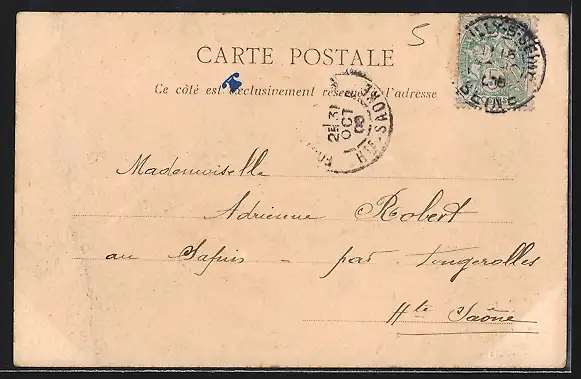 5
CARTE POSTALE
Ce côté est exclusivement réservé à l'adresse
ILLY-S-SEINE
06
SEINE
HTE-SAONE
2E 31
OCT
06
Mademoiselle
Adrienne Robert
au Sapin - par Fougerolles
Hte Saône